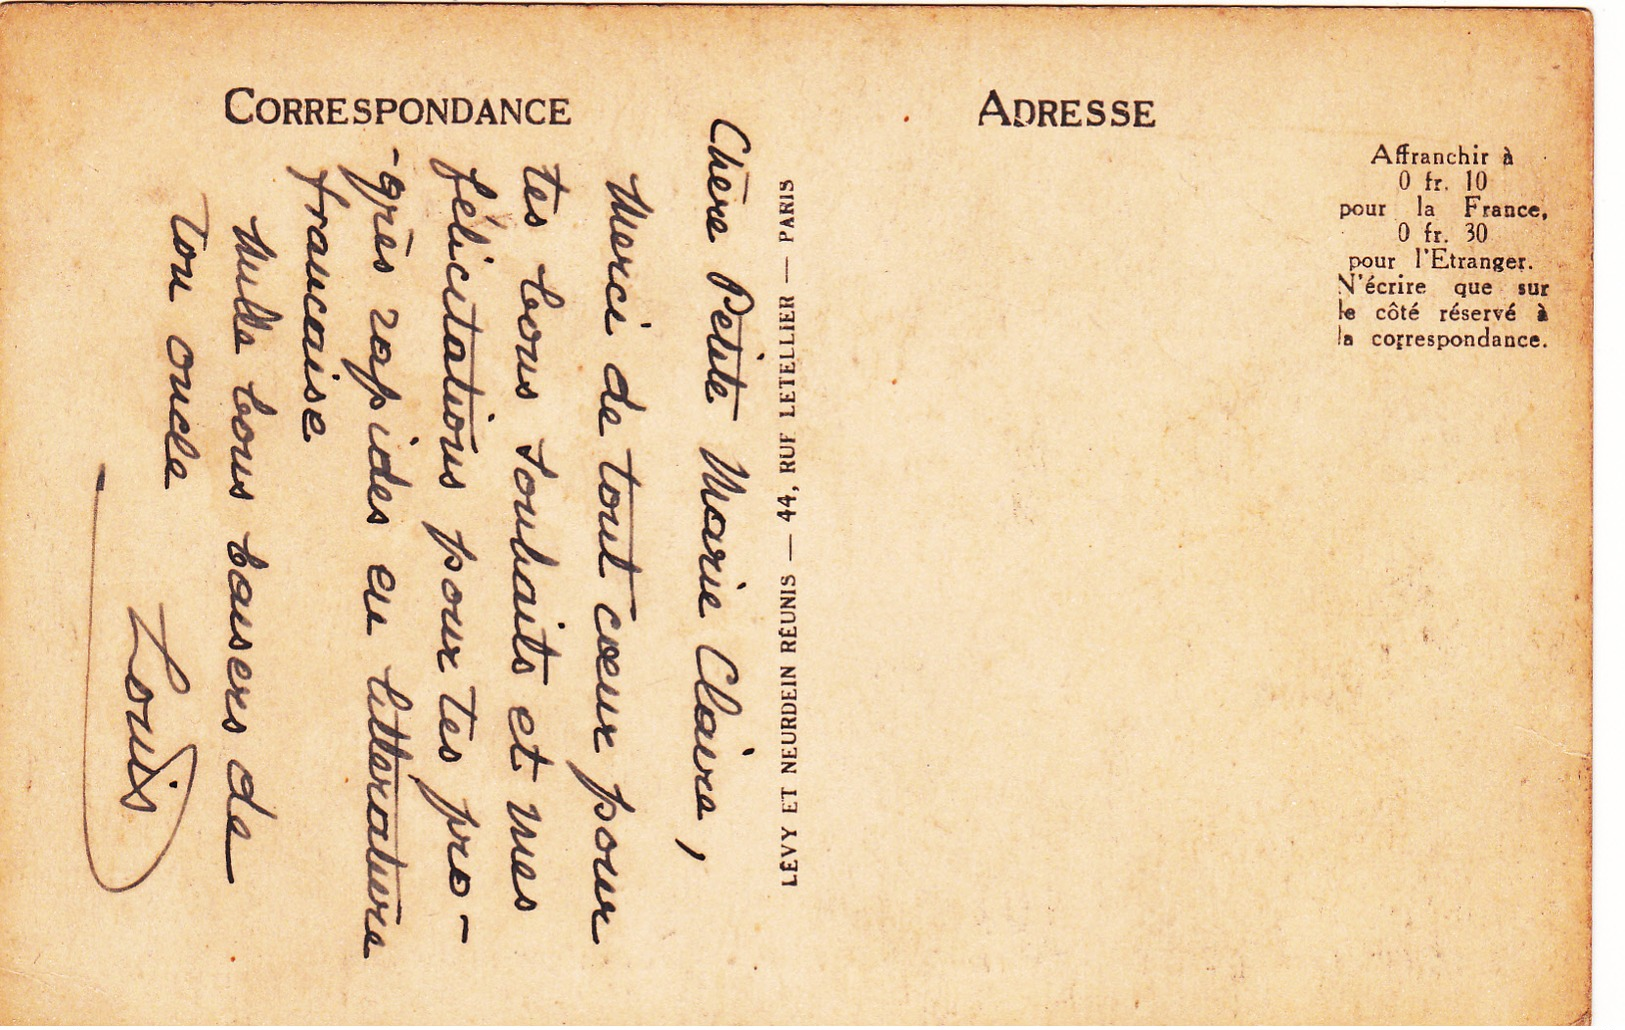 CORRESPONDANCE
Chère Petite Marie Claire,
Merci de tout cœur pour
tes bons souhaits et mes
félicitations pour tes pro-
-grès rapides en littérature
francaise
Mille bons baisers de
Ton oncle
Louis
LÉVY ET NEURDEIN RÉUNIS — 44, RUE LETELLIER — PARIS
ADRESSE
Affranchir à
0 fr. 10
pour la France,
0 fr. 30
pour l'Etranger.
N'écrire que sur
le côté réservé à
la correspondance.